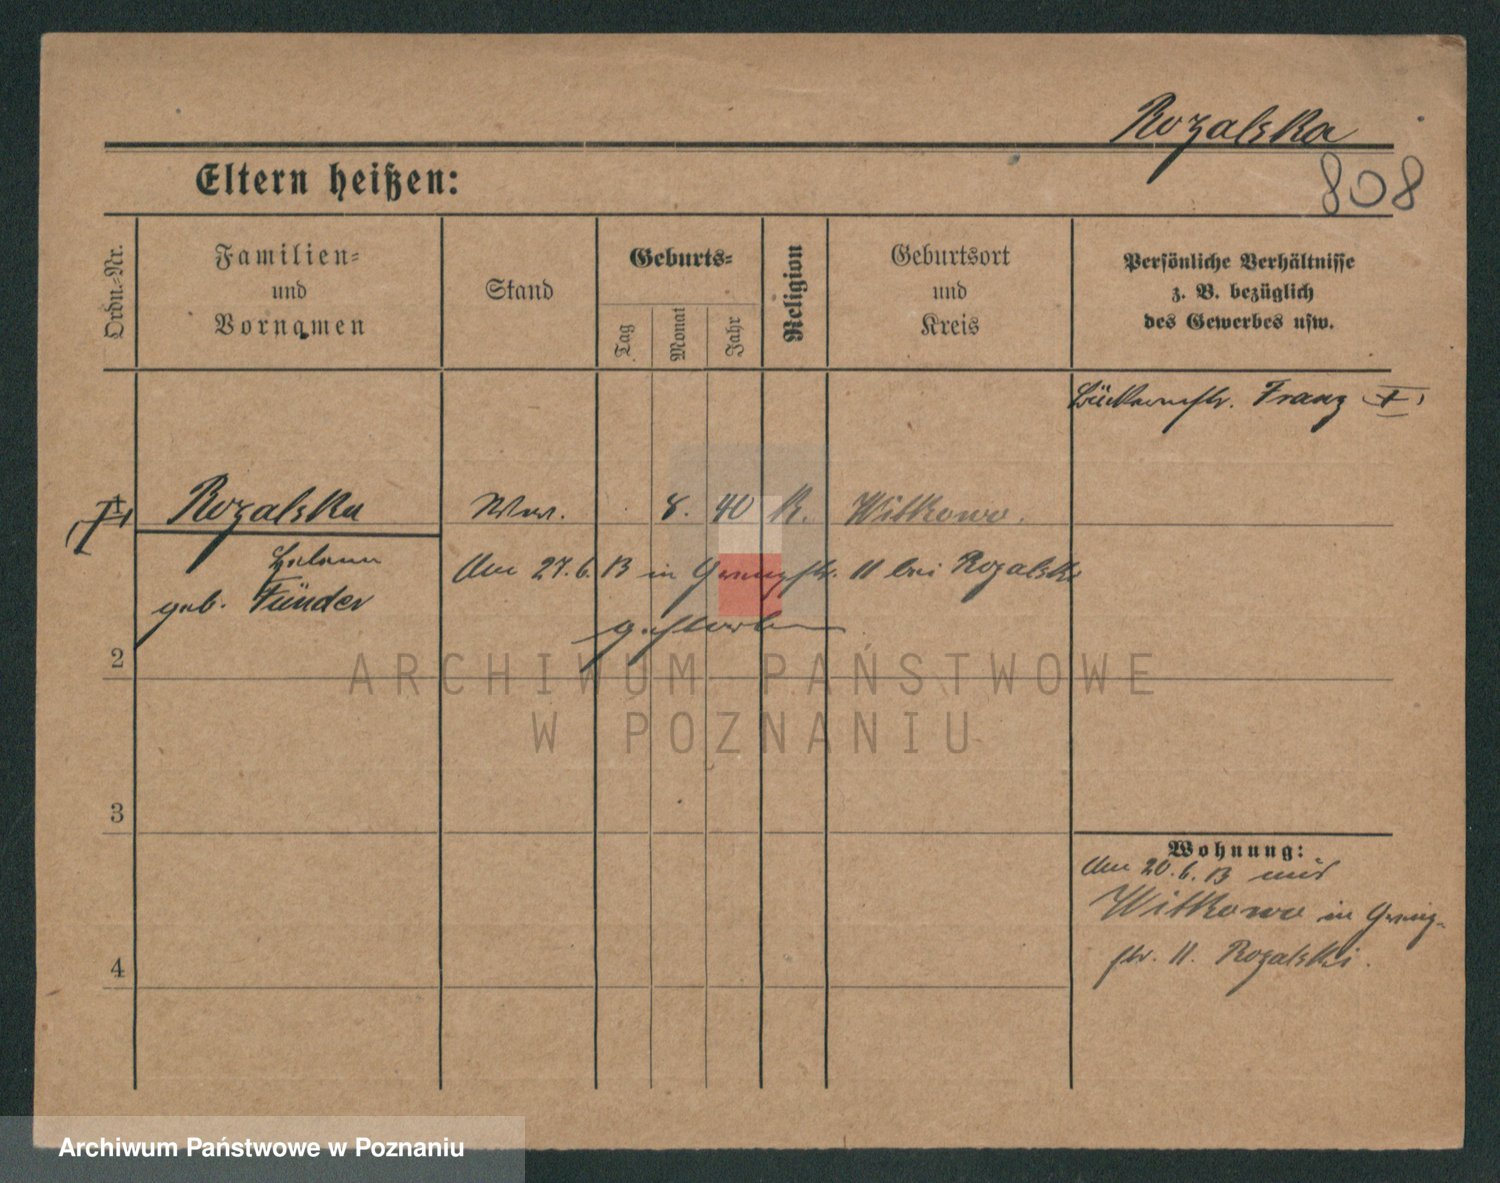 Rozalska
808
Eltern heißen:
Ordn.-Nr.
Familien-
und
Vornamen
Stand
Geburts-
Tag
Monat
Jahr
Religion
Geburtsort
und
Kreis
Persönliche Verhältnisse
z. B. bezüglich
des Gewerbes usw.
Franz
Rozalska
Ww.
8.
40
K.
Witkowo.
geb. Fünder
Am 27.6.13 in 11 bei Rozalski
gestorben
2
3
4
Wohnung:
Am 20.6.13 aus
Witkowo in
str. 11. Rozalski.
ARCHIWUM PAŃSTWOWE
W POZNANIU
Archiwum Państwowe w Poznaniu